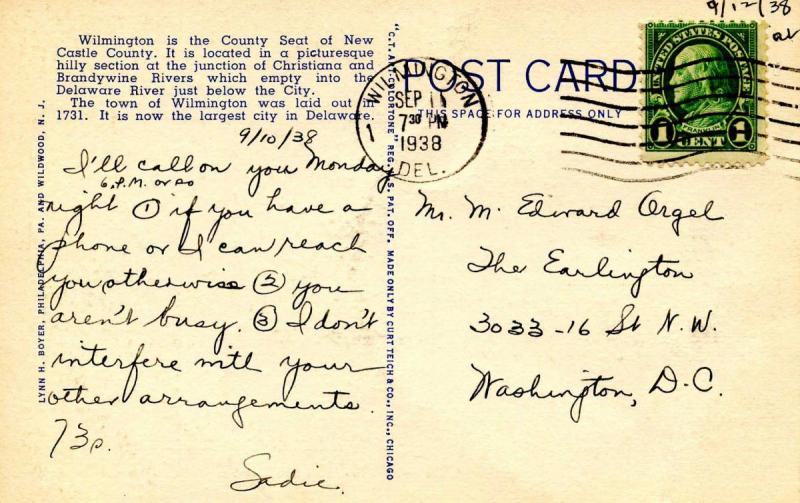 9/12/38
Wilmington is the County Seat of New
Castle County. It is located in a picturesque
hilly section at the junction of Christiana and
Brandywine Rivers which empty into the
Delaware River just below the City.
The town of Wilmington was laid out in
1731. It is now the largest city in Delaware.
9/10/38
I'll call on you Monday
6 P.M. or so
night ① if you have a
phone or I can reach
you otherwise ② you
aren't busy. ③ I don't
interfere with your
other arrangements.
73s.
Sadie.
LYNN H. BOYER, PHILADELPHIA, PA. AND WILDWOOD, N. J.
"C.T. ART-COLORTONE" REG. U.S. PAT. OFF. MADE ONLY BY CURT TEICH & CO., INC., CHICAGO
POST CARD
THIS SPACE FOR ADDRESS ONLY
WILMINGTON
SEP 11
7 30 PM
1938
DEL.
1
UNITED STATES POSTAGE
FRANKLIN
1 CENT 1
Mr. M. Edward Orgel
The Earlington
3033-16 St N.W.
Washington, D.C.